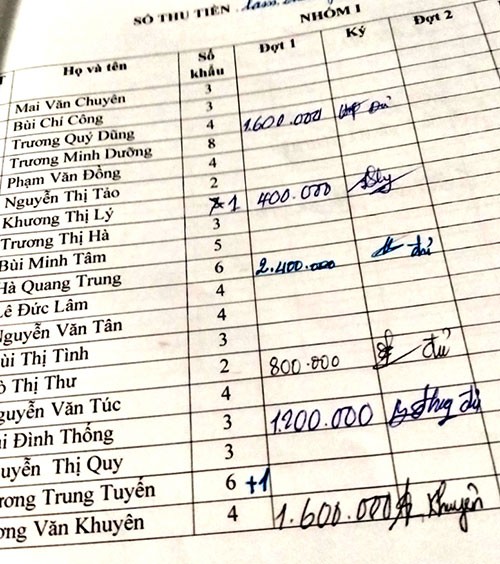 SỔ THU TIỀN
NHÓM 1
Họ và tên Số khẩu Đợt 1 Ký Đợt 2
Mai Văn Chuyên 3
Bùi Chí Công 3
Trương Quý Dũng 4 1.600.000 đủ
Trương Minh Dưỡng 8
Phạm Văn Đồng 4
Nguyễn Thị Tảo 2
Khương Thị Lý 1 400.000
Trương Thị Hà 3
Bùi Minh Tâm 5
Hà Quang Trung 6 2.400.000 đủ
Lê Đức Lâm 4
Nguyễn Văn Tân 4
ùi Thị Tình 3
Thị Thư 2 800.000 đủ
guyễn Văn Túc 4
i Đình Thống 3 1200.000 đủ
uyễn Thị Quy 3
ương Trung Tuyến 6 +1
ơng Văn Khuyên 4 1.600.000 Khuyên